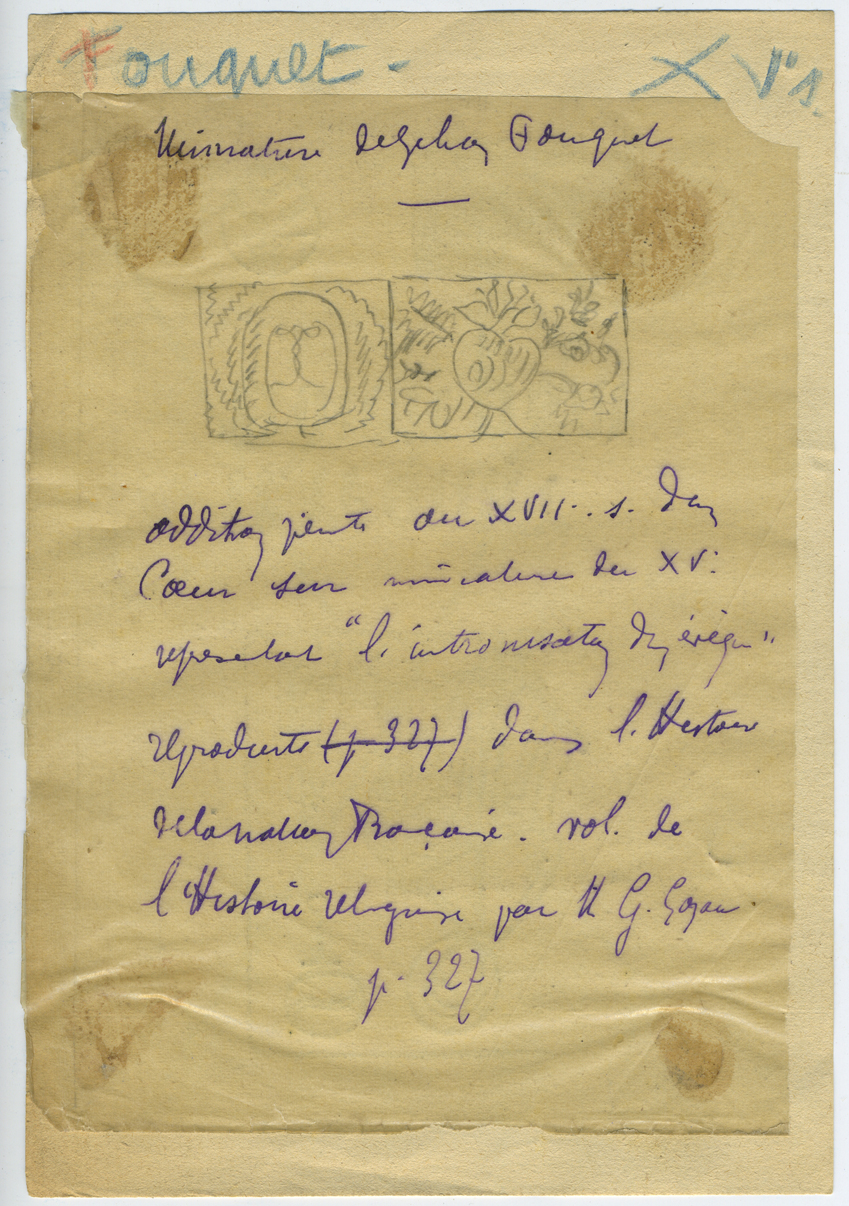 Fouquet - XVe s.
Miniature de Jehan Fouquet
addition peinte au XVII. s. d'un
Cœur sur miniature du XV.
représentant "l'intronisation d'un évêque"
reproduite (p 327) dans l'Histoire
de la nation Française. vol. de
l'Histoire religieuse par M G. Goyau.
p. 327